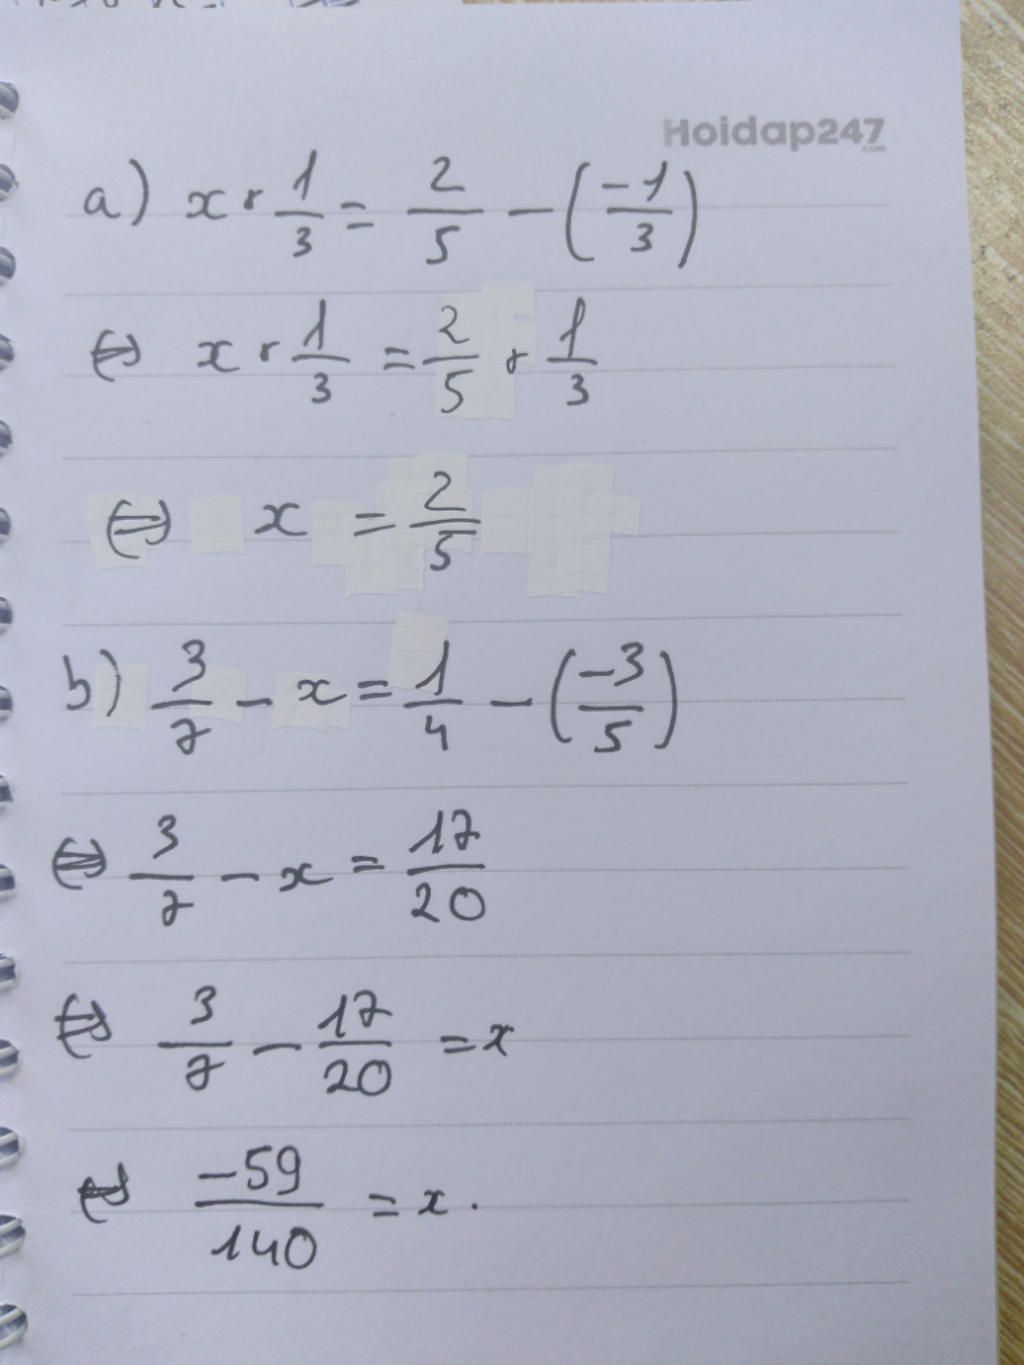 Hoidap247
.com
a) x + 1/3 = 2/5 - (-1/3)
⇔ x + 1/3 = 2/5 + 1/3
⇔ x = 2/5
b) 3/7 - x = 1/4 - (-3/5)
⇔ 3/7 - x = 17/20
⇔ 3/7 - 17/20 = x
⇔ -59/140 = x.